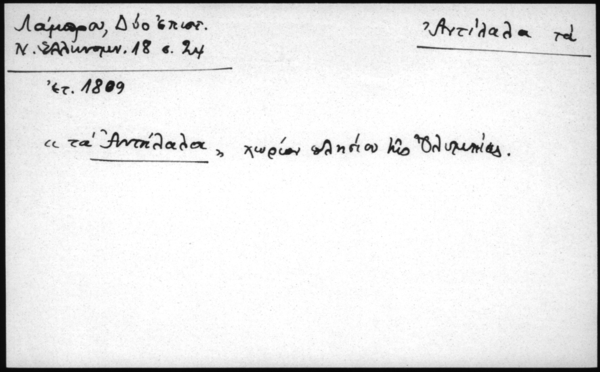 Λάμπρου, Δύο Ἐπιστ.
Ν. Ἑλληνομν. 18 σ. 24
Ἀντίλαλα τά
ἔτ. 1809
« τά Ἀντήλαλα » χωρίον πλησίον τῆς Ὀλυμπίας.